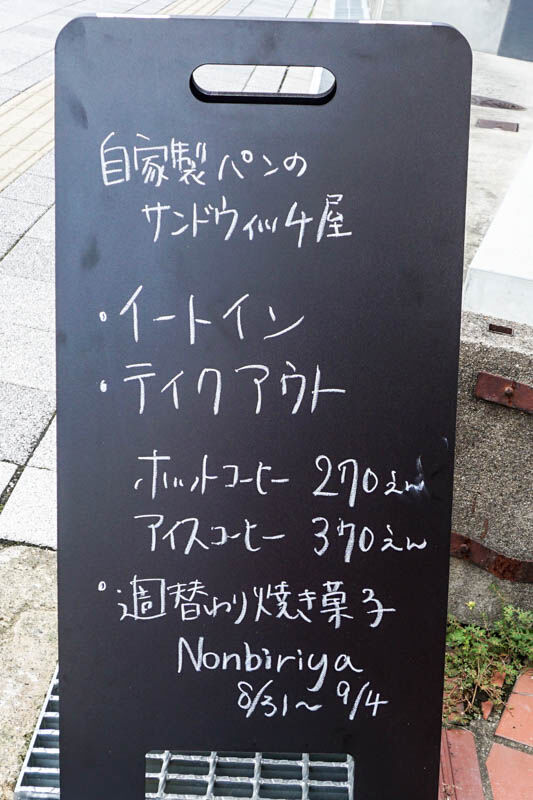 自家製パンの
サンドウィッチ屋
・イートイン
・テイクアウト
ホットコーヒー 270えん
アイスコーヒー 370えん
・週替わり焼き菓子
Nonbiriya
8/31〜 9/4